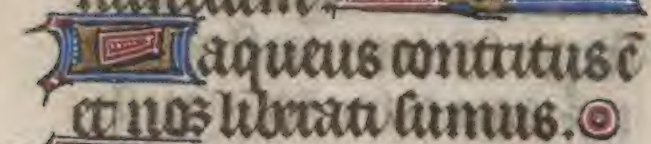 Laqueus contritus ē
et nos liberati sumus.